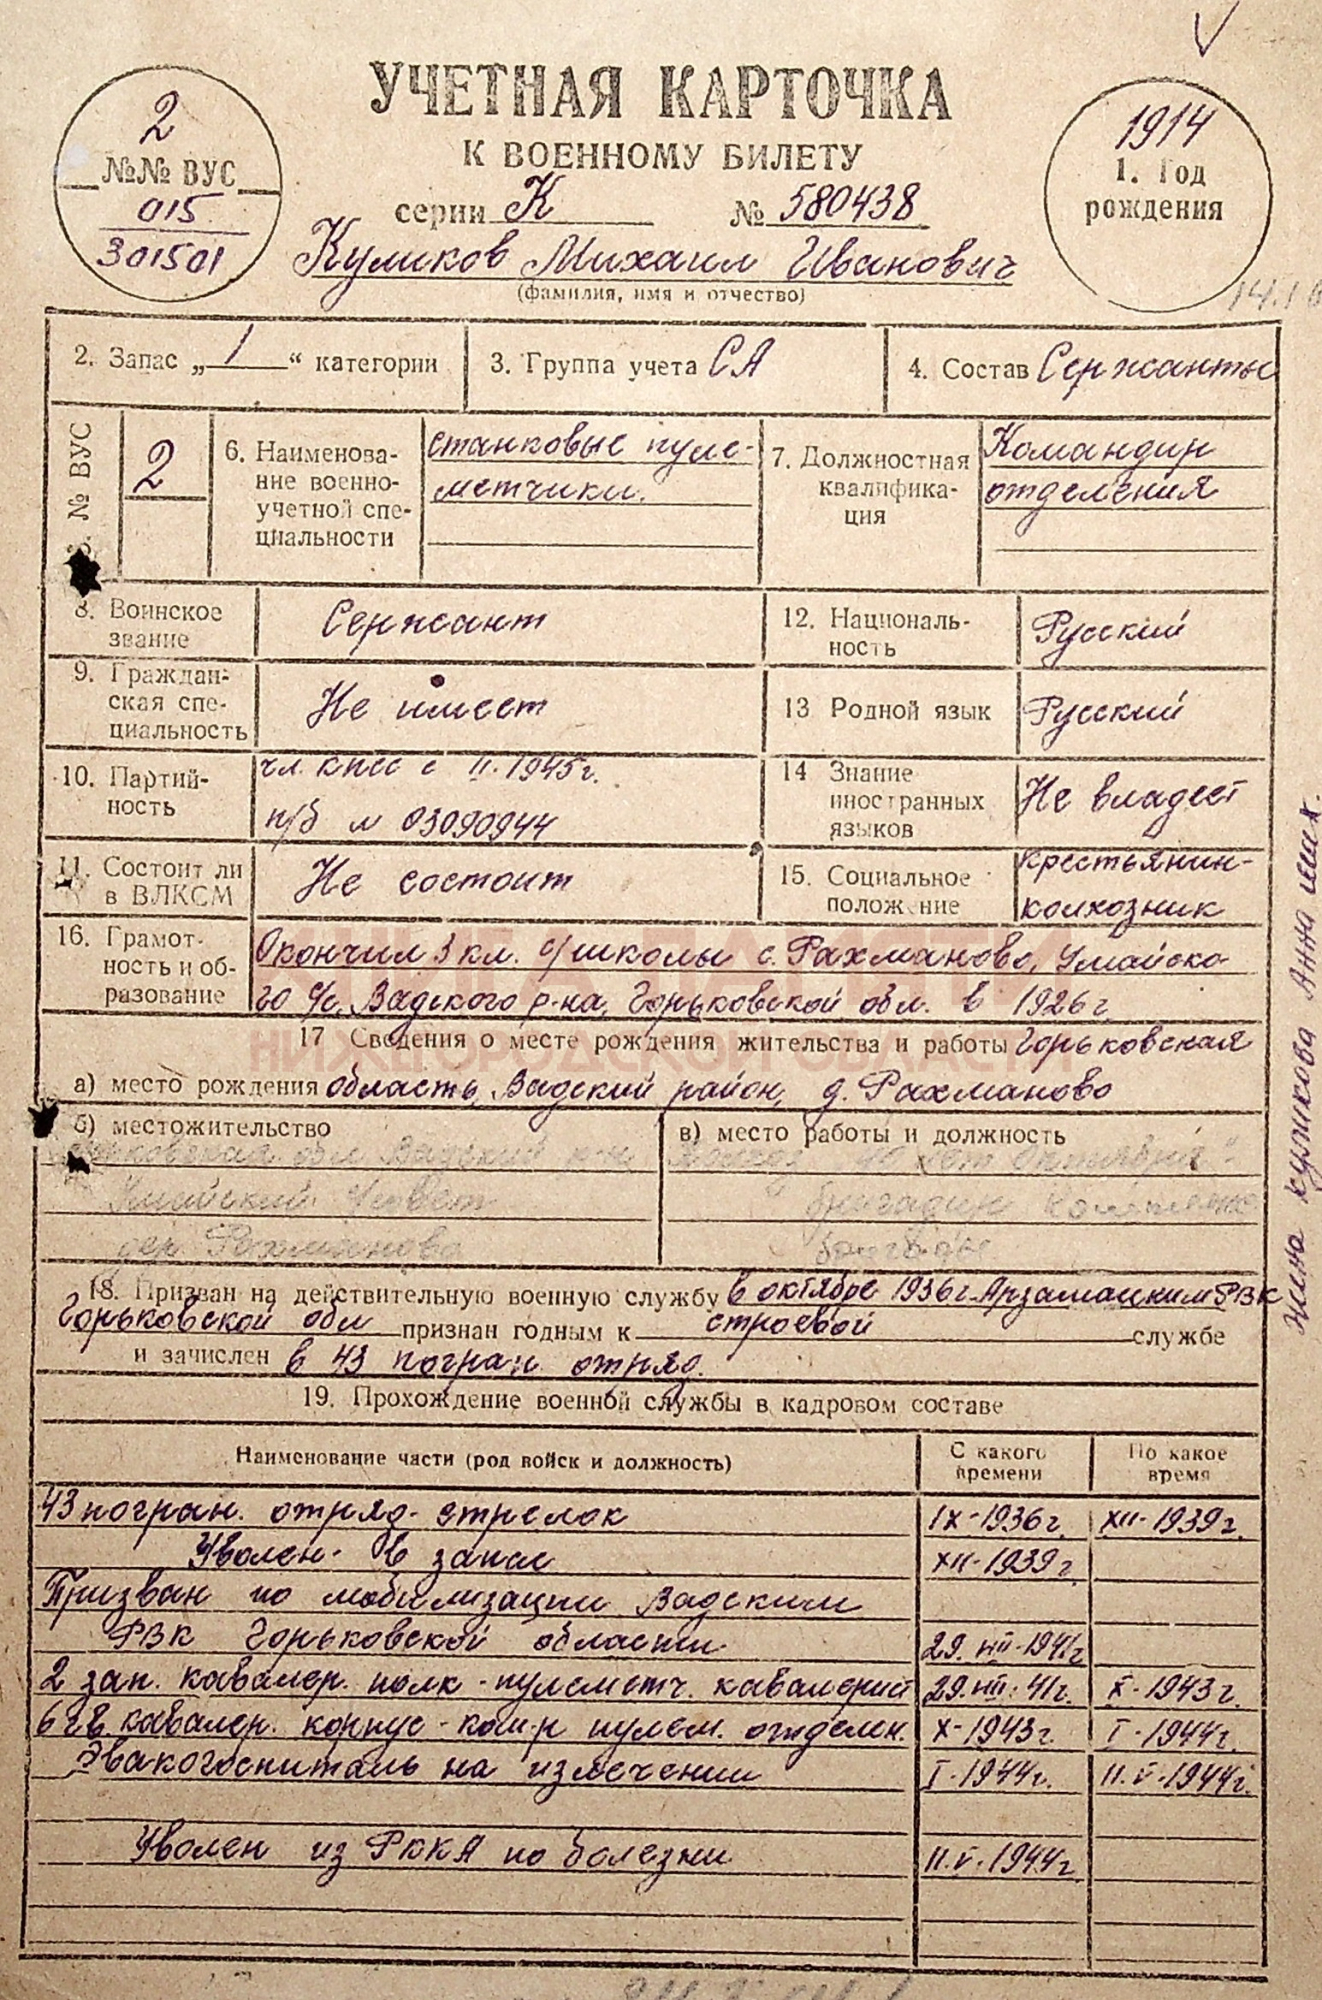 УЧЕТНАЯ КАРТОЧКА
К ВОЕННОМУ БИЛЕТУ
серии К № 580438
Куликов Михаил Иванович
(фамилия, имя и отчество)
2
№№ ВУС
015
301501
1914
1. Год
рождения
2. Запас „1“ категории
3. Группа учета СА
4. Состав Сержанты
№ ВУС
2
6. Наименова-
ние военно-
учетной спе-
циальности
станковые пуле-
метчики.
7. Должностная
квалифика-
ция
Командир
отделения
8. Воинское
звание
Сержант
12. Националь-
ность
Русский
9. Граждан-
ская спе-
циальность
Не имеет
13 Родной язык
Русский
10. Партий-
ность
чл. КПСС с II. 1945г.
п/б № 03090944
14 Знание
иностранных
языков
Не владеет
11. Состоит ли
в ВЛКСМ
Не состоит
15. Социальное
положение
крестьянин-
колхозник
16. Грамот-
ность и об-
разование
Окончил 3 кл. с/школы с. Рахманово, Умайско-
го с/с. Вадского р-на, Горьковской обл. в 1926г
КНИГА ПАМЯТИ
НИЖЕГОРОДСКОЙ ОБЛАСТИ
17 Сведения о месте рождения жительства и работы Горьковская
а) место рождения область, Вадский район, д. Рахманово
б) местожительство
обл. Вадский р-н
дер. Рахманово
в) место работы и должность
10 лет Октября"
бригадир
бригады
18. Призван на действительную военную службу в октябре 1936г. Арзамаским РВК
Горьковской обл признан годным к строевой службе
и зачислен в 43 погран. отряд.
19. Прохождение военной службы в кадровом составе
Наименование части (род войск и должность)
С какого
времени
По какое
время
43 погран. отряд- стрелок IX-1936г. XII-1939г.
Уволен- в запас XII-1939г
Призван по мобилизации Вадским
РВК Горьковской области 29. VIII-1941г
2 зап. кавалер. полк - пулеметч. кавалерист 29. VIII. 41г. X-1943г.
6 гв. кавалер. корпус - ком-р пулем. отделен. X-1943г. I-1944г.
Эвакогоспиталь на излечении I-1944г. 11.V-1944г.
Уволен из РККА по болезни 11.V.1944г
Жена Куликова Анна